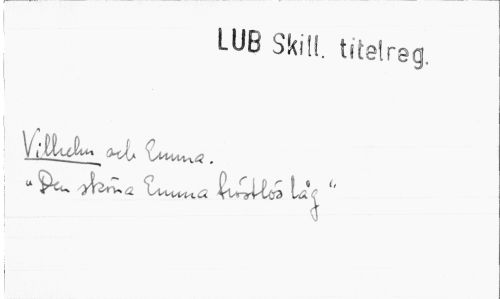 LUB Skill. titelreg.
Vilhelm och Emma.
"Den sköna Emma tröstlös låg"